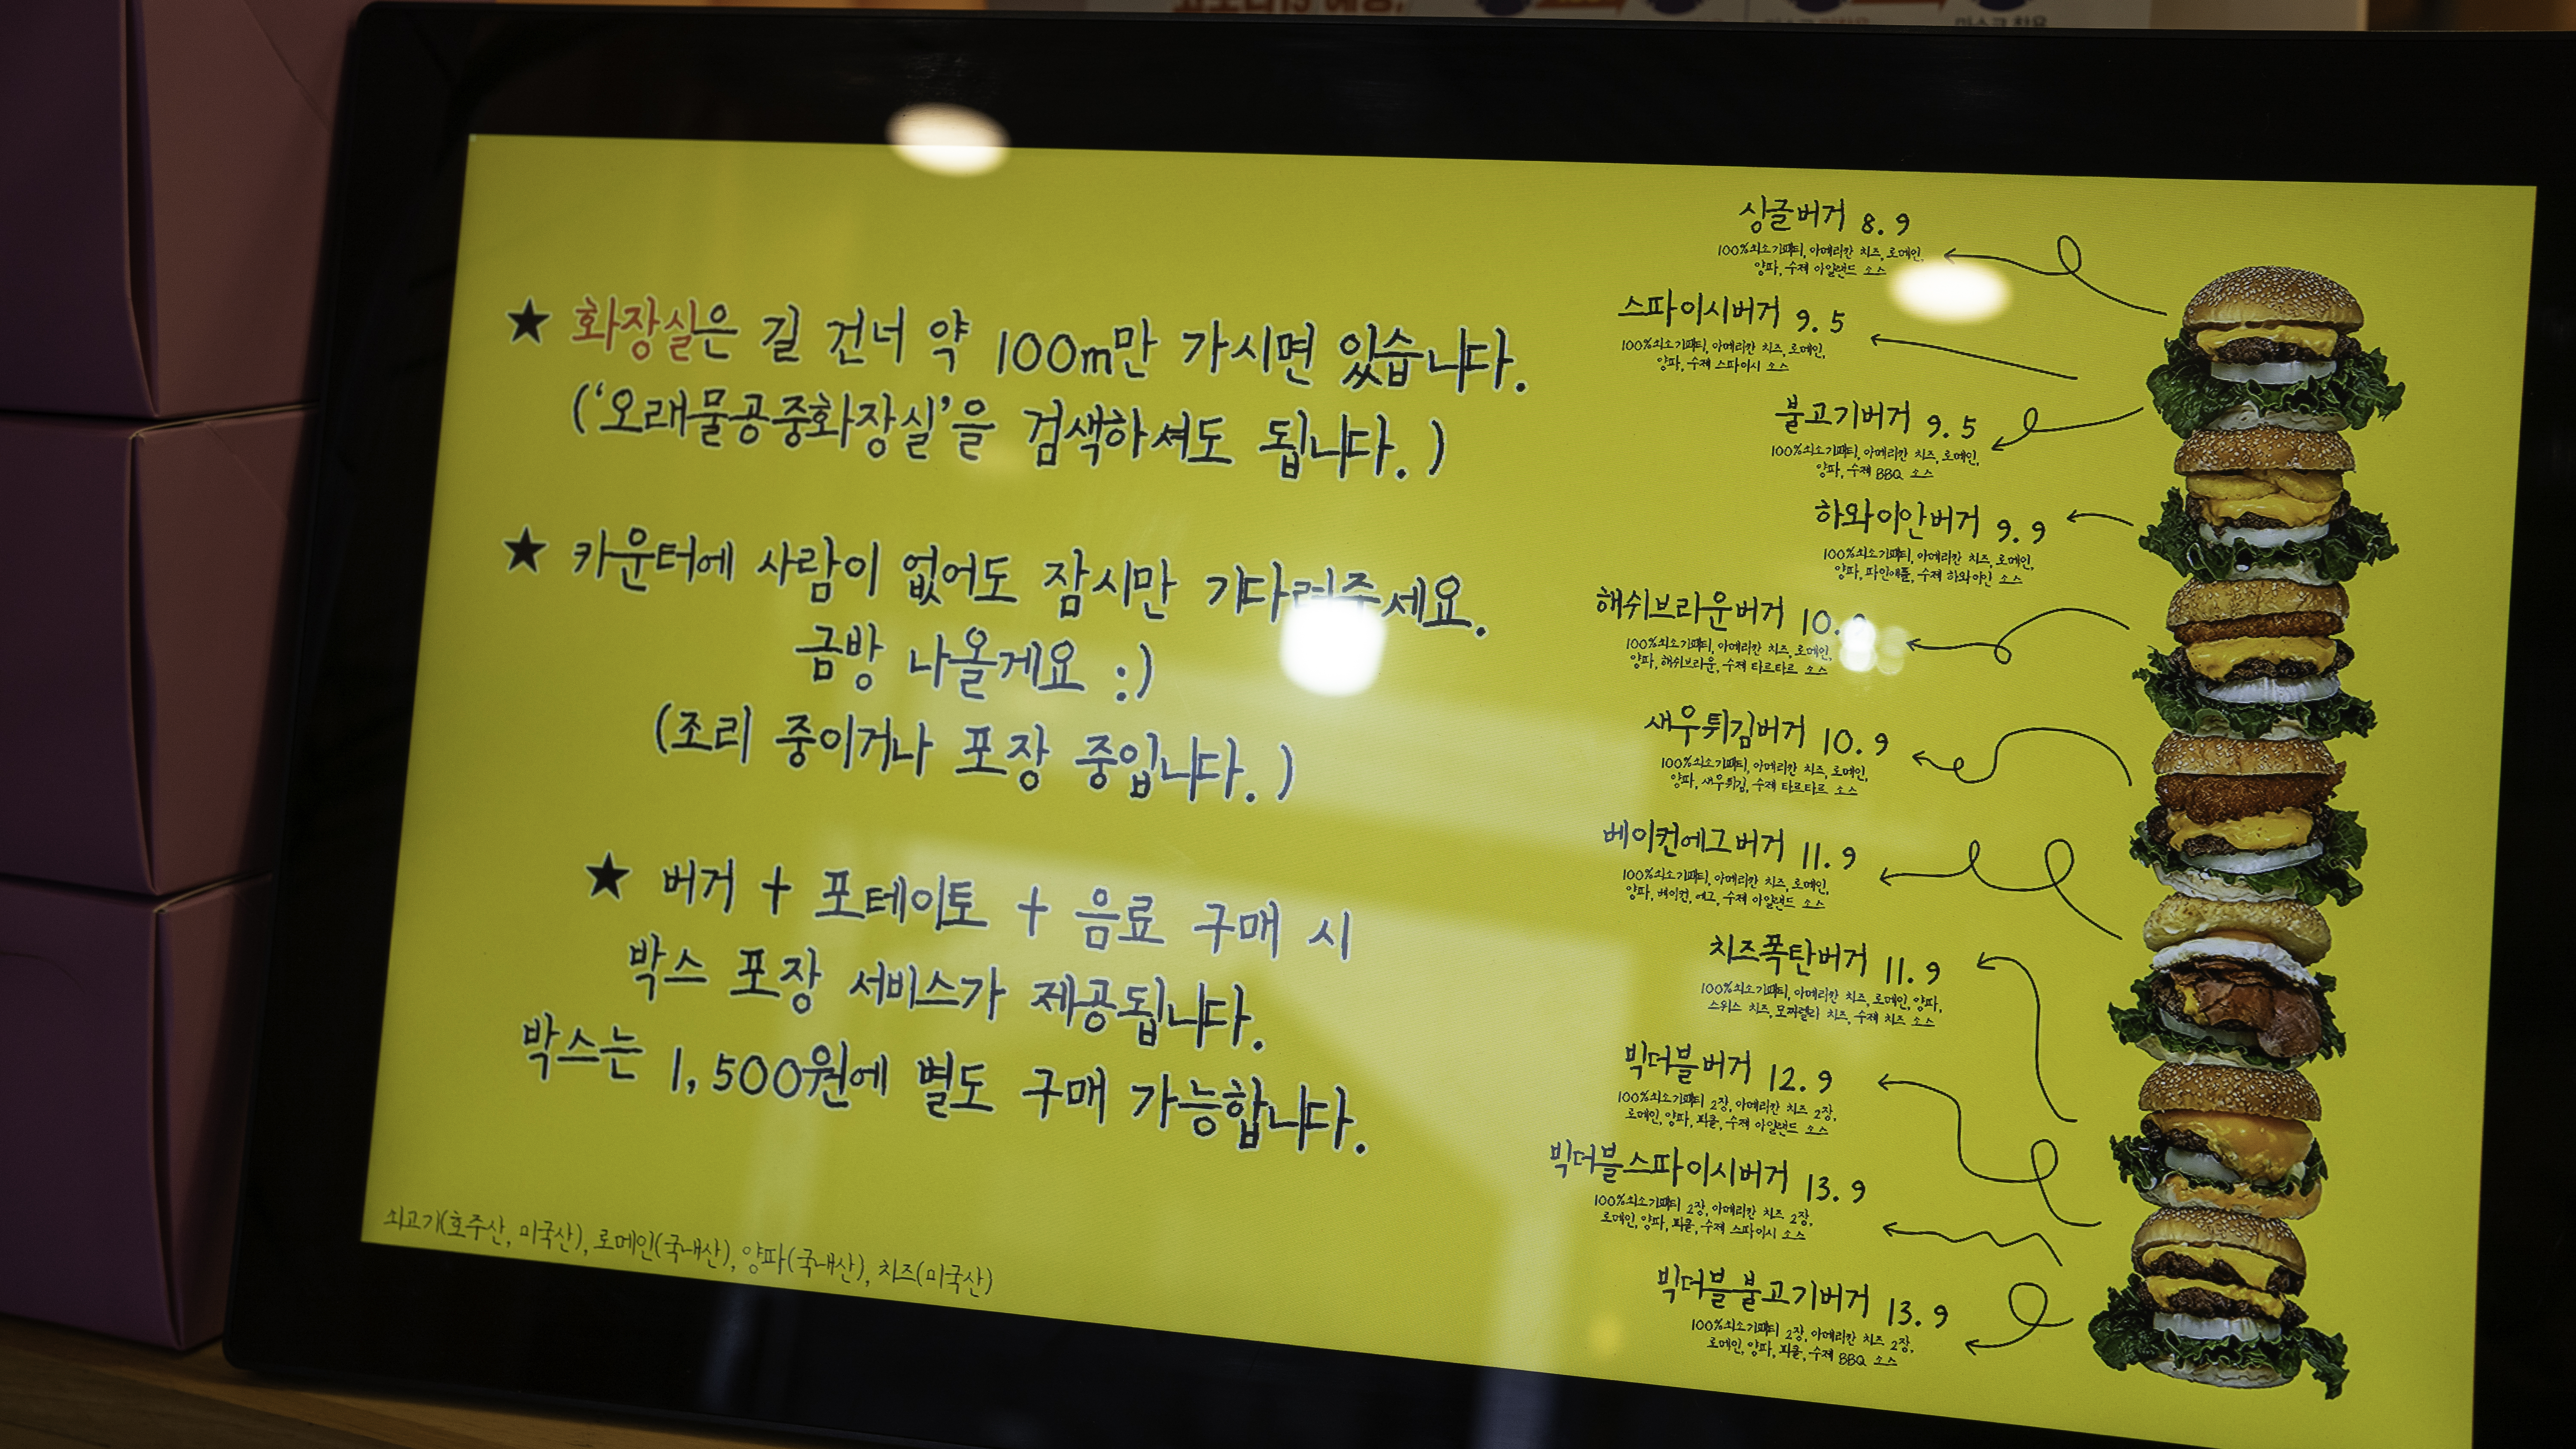 ★ 화장실은 길 건너 약 100m만 가시면 있습니다.
('오래물공중화장실'을 검색하셔도 됩니다.)
★ 카운터에 사람이 없어도 잠시만 기다려주세요.
금방 나올게요 :)
(조리 중이거나 포장 중입니다.)
★ 버거 + 포테이토 + 음료 구매 시
박스 포장 서비스가 제공됩니다.
박스는 1,500원에 별도 구매 가능합니다.
쇠고기(호주산, 미국산), 로메인(국내산), 양파(국내산), 치즈(미국산)
싱글버거 8.9
100%쇠소기패티, 아메리칸 치즈, 로메인,
양파, 수제 아일랜드 소스
스파이시버거 9.5
100%쇠소기패티, 아메리칸 치즈, 로메인,
양파, 수제 스파이시 소스
불고기버거 9.5
100%쇠소기패티, 아메리칸 치즈, 로메인,
양파, 수제 BBQ 소스
하와이안버거 9.9
100%쇠소기패티, 아메리칸 치즈, 로메인,
양파, 파인애플, 수제 하와이안 소스
해쉬브라운버거
100%쇠소기패티, 아메리칸 치즈, 로메인,
양파, 해쉬브라운, 수제 타르타르 소스
새우튀김버거 10.9
100%쇠소기패티, 아메리칸 치즈, 로메인,
양파, 새우튀김, 수제 타르타르 소스
베이컨에그버거 11.9
100%쇠소기패티, 아메리칸 치즈, 로메인,
양파, 베이컨, 에그, 수제 아일랜드 소스
치즈폭탄버거 11.9
100%쇠소기패티, 아메리칸 치즈, 로메인, 양파,
스위스 치즈, 모짜렐라 치즈, 수제 치즈 소스
빅더블버거 12.9
100%쇠소기패티 2장, 아메리칸 치즈 2장,
로메인, 양파, 피클, 수제 아일랜드 소스
빅더블스파이시버거 13.9
100%쇠소기패티 2장, 아메리칸 치즈 2장,
로메인, 양파, 피클, 수제 스파이시 소스
빅더블불고기버거 13.9
100%쇠소기패티 2장, 아메리칸 치즈 2장,
로메인, 양파, 피클, 수제 BBQ 소스